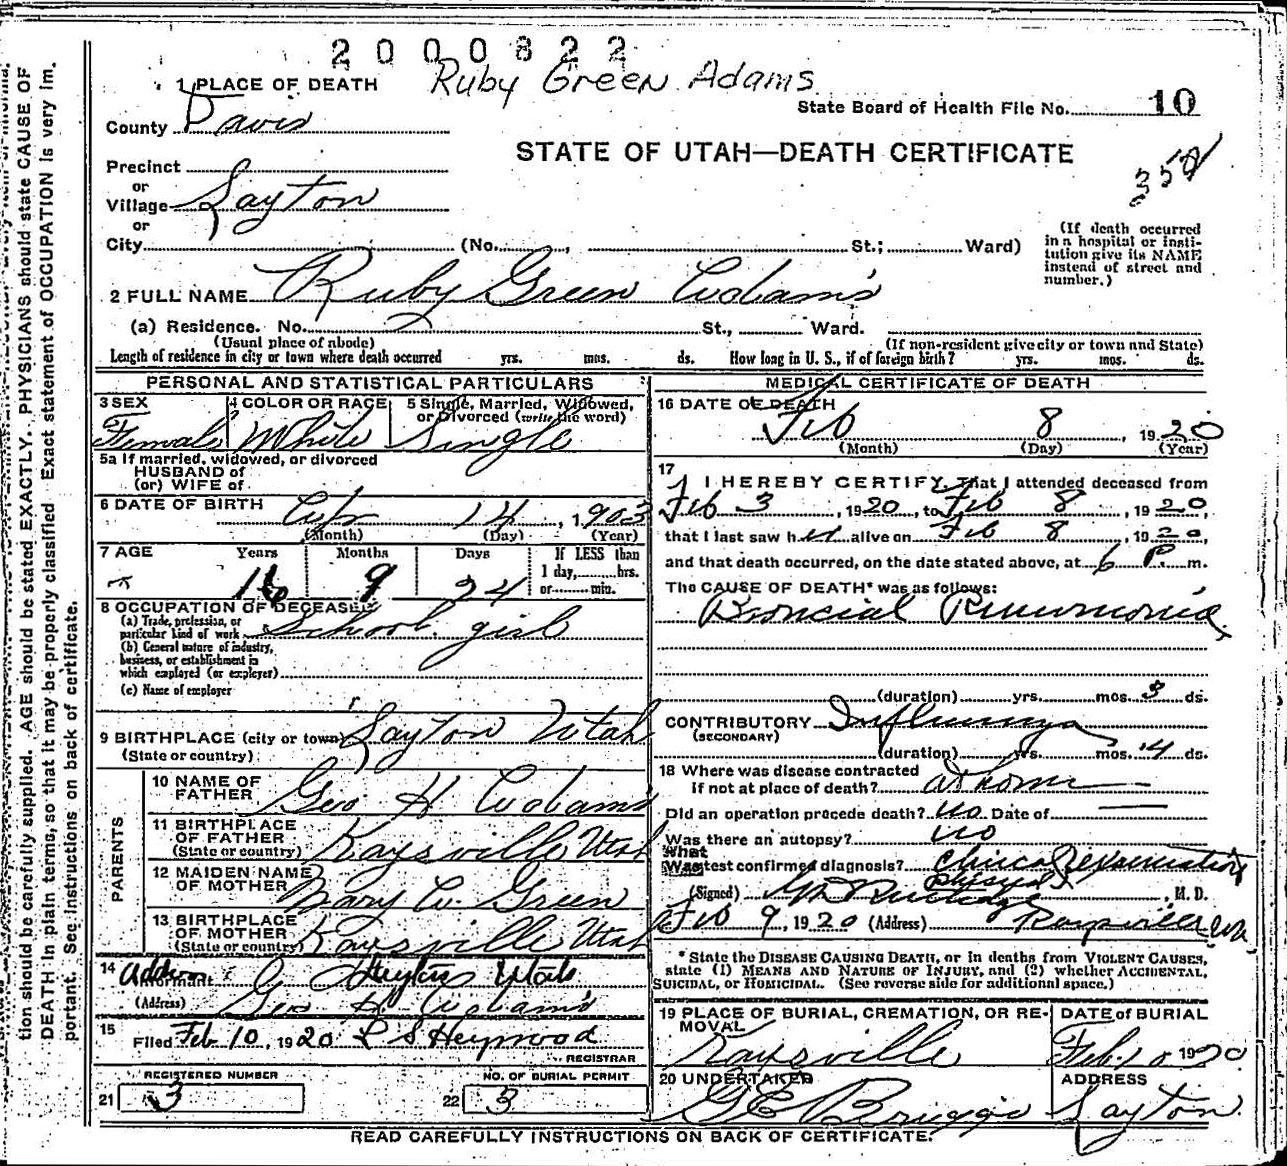 2000822
Ruby Green Adams
1 PLACE OF DEATH
State Board of Health File No. 10
County Davis
STATE OF UTAH—DEATH CERTIFICATE
352
Precinct
or
Village Layton
or
City (No. , St.; Ward)
(If death occurred
in a hospital or insti-
tution give its NAME
instead of street and
number.)
2 FULL NAME Ruby Green Adams
(a) Residence. No. St., Ward.
(Usual place of abode) (If non-resident give city or town and State)
Length of residence in city or town where death occurred yrs. mos. ds. How long in U. S., if of foreign birth? yrs. mos. ds.
PERSONAL AND STATISTICAL PARTICULARS
3 SEX 4 COLOR OR RACE 5 Single, Married, Widowed,
or Divorced (write the word)
Female White Single
5a If married, widowed, or divorced
HUSBAND of
(or) WIFE of
6 DATE OF BIRTH Apr 14, 1903
(Month) (Day) (Year)
7 AGE Years Months Days If LESS than
1 day, hrs.
or min.
16 9 24
8 OCCUPATION OF DECEASED
(a) Trade, profession, or
particular kind of work School girl
(b) General nature of industry,
business, or establishment in
which employed (or employer)
(c) Name of employer
9 BIRTHPLACE (city or town) Layton Utah
(State or country)
PARENTS
10 NAME OF
FATHER Geo H Adams
11 BIRTHPLACE
OF FATHER
(State or country) Kaysville Utah
12 MAIDEN NAME
OF MOTHER Mary A. Green
13 BIRTHPLACE
OF MOTHER
(State or country) Kaysville Utah
14 Address Layton Utah
Informant
(Address) Geo H Adams
15
Filed Feb 10, 1920 L S Heywood
REGISTRAR
REGISTERED NUMBER NO. OF BURIAL PERMIT
21 3 22 3
MEDICAL CERTIFICATE OF DEATH
16 DATE OF DEATH
Feb 8, 1920
(Month) (Day) (Year)
17
I HEREBY CERTIFY, That I attended deceased from
Feb 3, 1920, to Feb 8, 1920,
that I last saw her alive on Feb 8, 1920,
and that death occurred, on the date stated above, at 6 P. m.
The CAUSE OF DEATH* was as follows:
Broncial Pneumonia
(duration) yrs. mos. 3 ds.
CONTRIBUTORY Influenza
(SECONDARY)
(duration) yrs. mos. 4 ds.
18 Where was disease contracted
if not at place of death? at home
Did an operation precede death? no Date of
Was there an autopsy? no
What
Was test confirmed diagnosis? clinical examination
physical
(Signed) , M. D.
Feb 9, 1920 (Address) Kaysville Ut
* State the DISEASE CAUSING DEATH, or in deaths from VIOLENT CAUSES,
state (1) MEANS AND NATURE OF INJURY, and (2) whether ACCIDENTAL,
SUICIDAL, or HOMICIDAL. (See reverse side for additional space.)
19 PLACE OF BURIAL, CREMATION, OR RE-
MOVAL
DATE of BURIAL
Kaysville Feb. 10 1920
20 UNDERTAKER ADDRESS
G E Briggs Layton
READ CAREFULLY INSTRUCTIONS ON BACK OF CERTIFICATE.
tion should be carefully supplied. AGE should be stated EXACTLY. PHYSICIANS should state CAUSE OF
DEATH in plain terms, so that it may be properly classified. Exact statement of OCCUPATION is very im-
portant. See instructions on back of certificate.